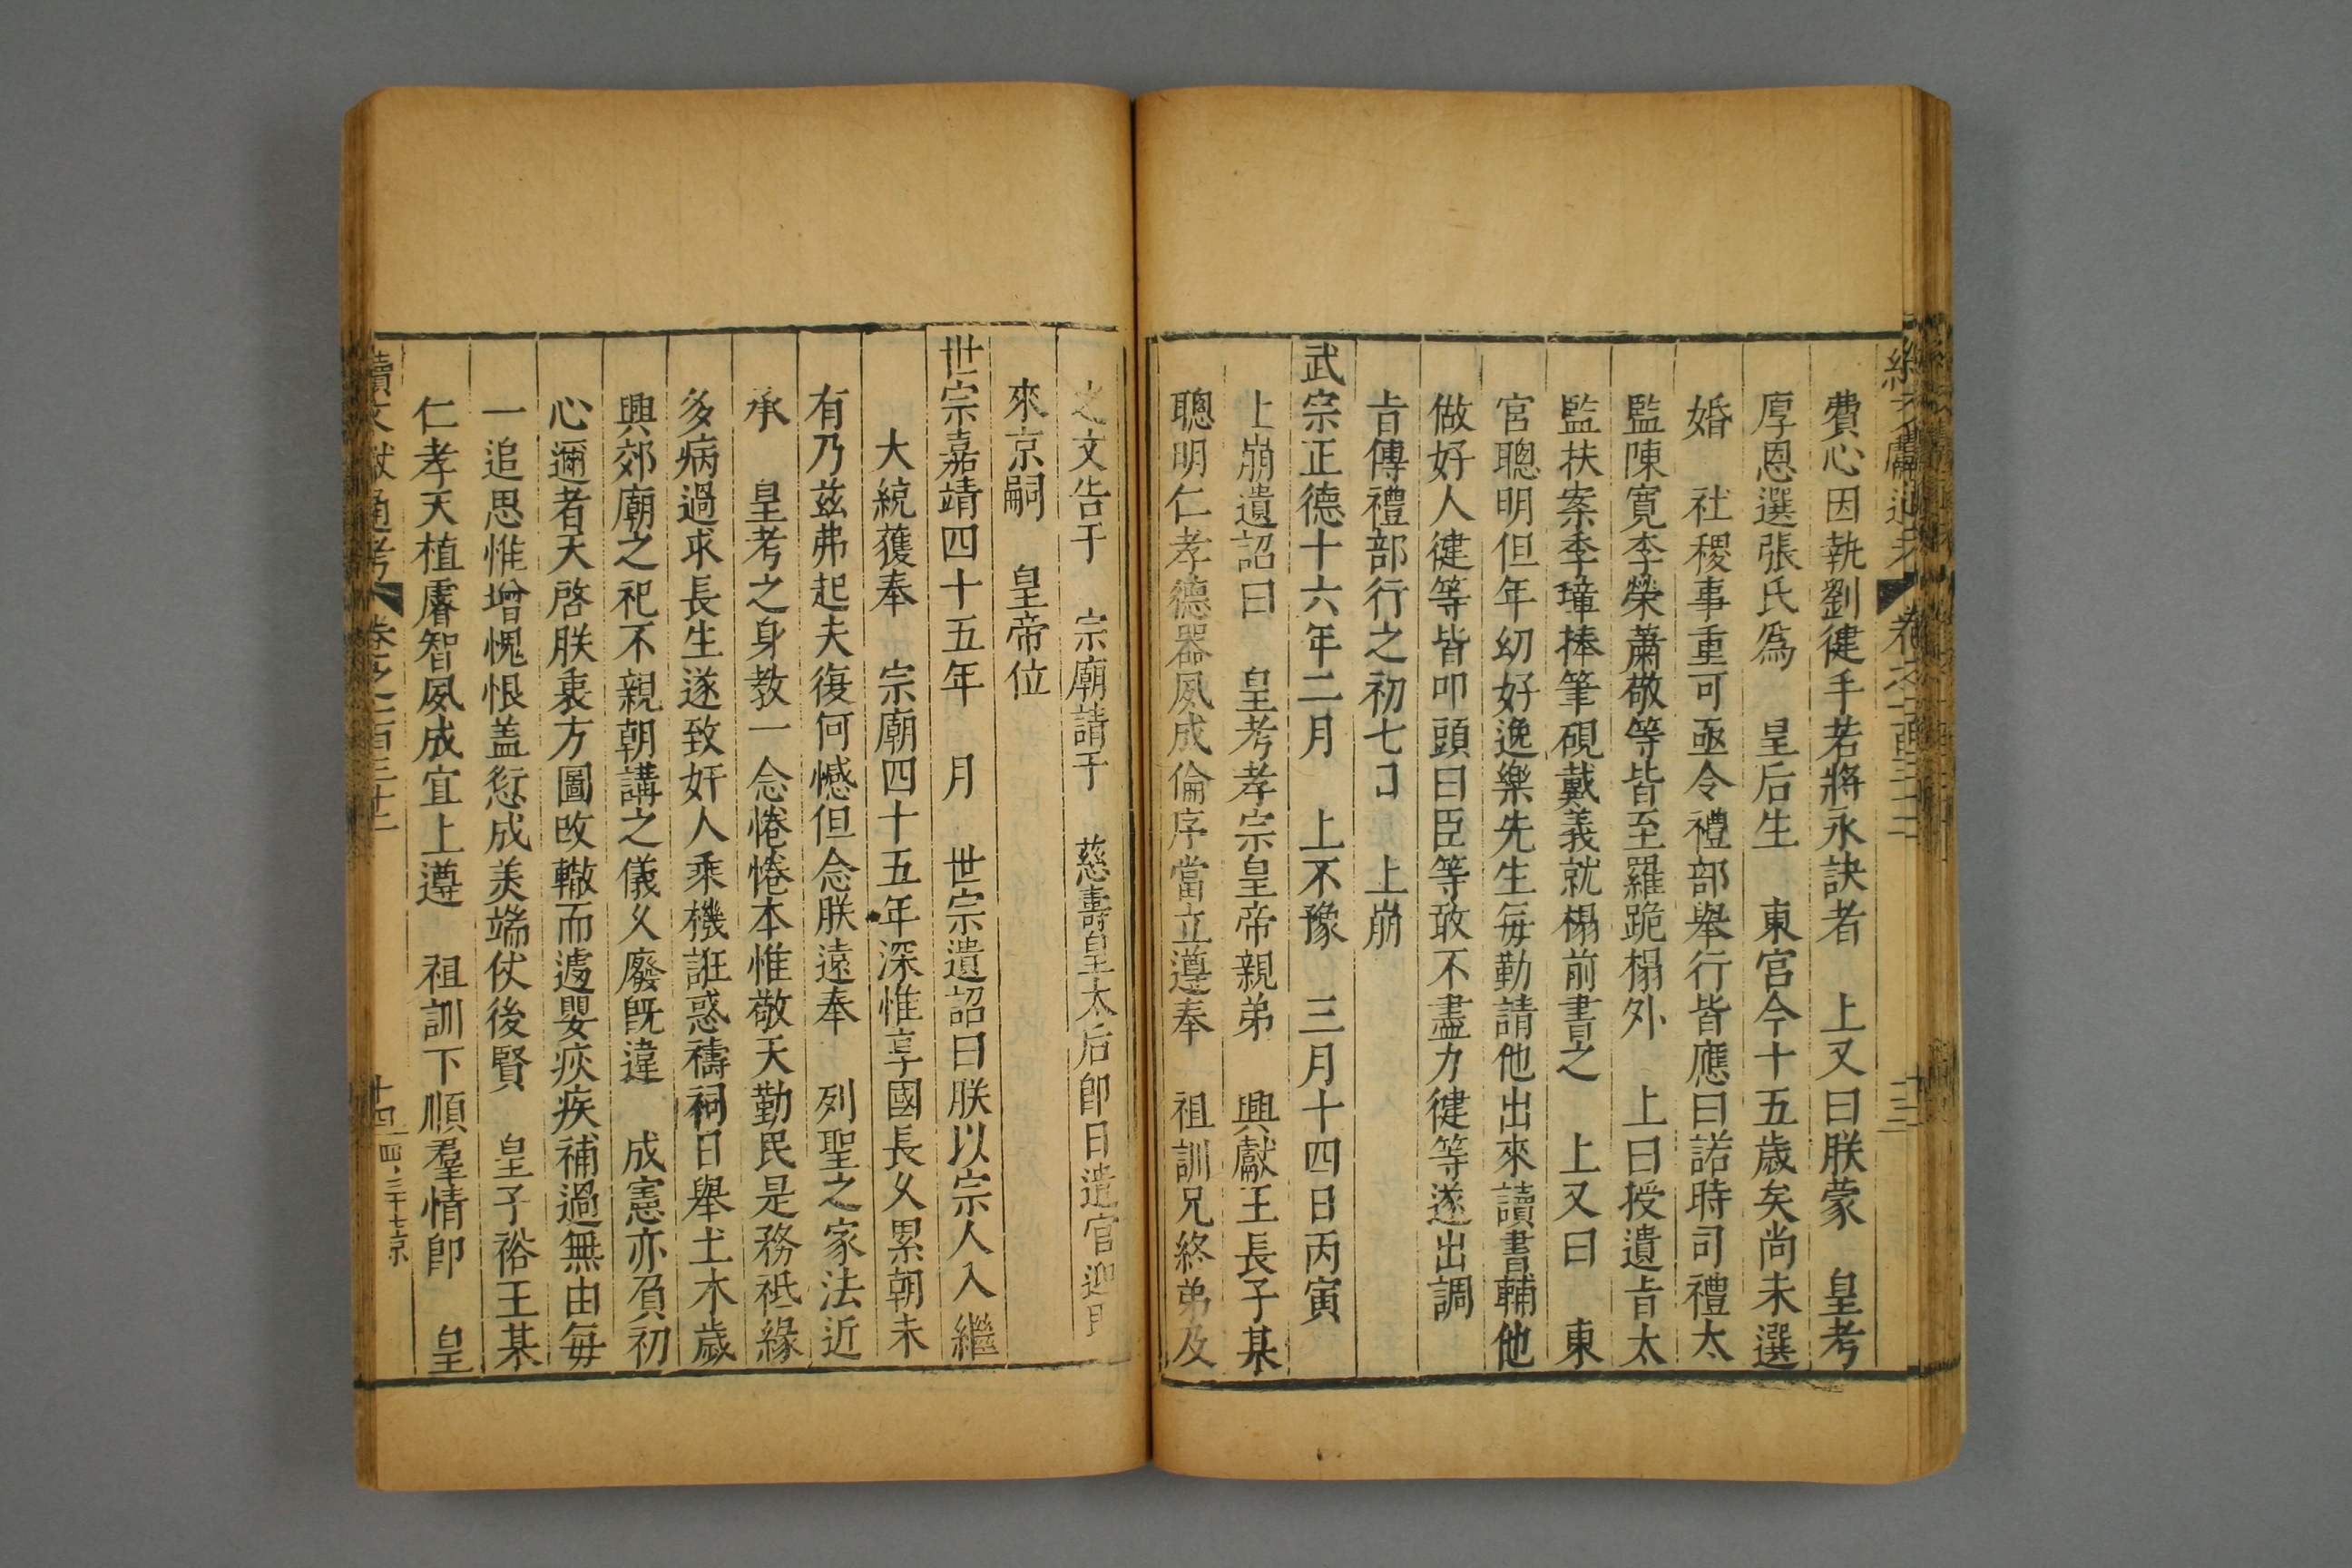 費心因執劉健手若將永訣者　上又曰朕蒙　皇考
厚恩選張氏爲　皇后生　東宮今十五歲矣尚未選
婚　社稷事重可亟令禮部舉行皆應曰諾時司禮太
監陳寛李榮蕭敬等皆至羅跪榻外　上曰授遺㫖太
監扶案李璋捧筆硯戴義就榻前書之　上又曰　東
宮聰明但年幼好逸樂先生毎勤請他出來讀書輔他
做好人健等皆叩頭曰臣等敢不盡力健等遂出調
㫖傳禮部行之初七　上崩
武宗正德十六年二月　上不豫　三月十四日丙寅
上崩遺詔曰　皇考孝宗皇帝親弟　興獻王長子某
聰明仁孝德器夙成倫序當立遵奉　祖訓兄終弟及
之文告于　宗廟請于　慈壽皇太后卽日遣官迎
來京嗣　皇帝位
世宗嘉靖四十五年　月　世宗遺詔曰朕以宗人入繼
大統獲奉　宗廟四十五年深惟享國長乆累朝未
有乃兹弗起夫復何憾但念朕遠奉　列聖之家法近
承　皇考之身教一念惓惓本惟敬天勤民是務秪緣
多病過求長生遂致奸人乘機誑惑禱祠日舉土木歲
興郊廟之祀不親朝講之儀乆廢旣違　成憲亦負初
心邇者天啓朕衷方圖改轍而遽嬰疢疾補過無由毎
一追思惟增愧恨盖愆成美端仗後賢　皇子裕王某
仁孝天植睿智夙成宜上遵　祖訓下順羣情卽　皇
續文獻通考　卷之二百三十二
十四